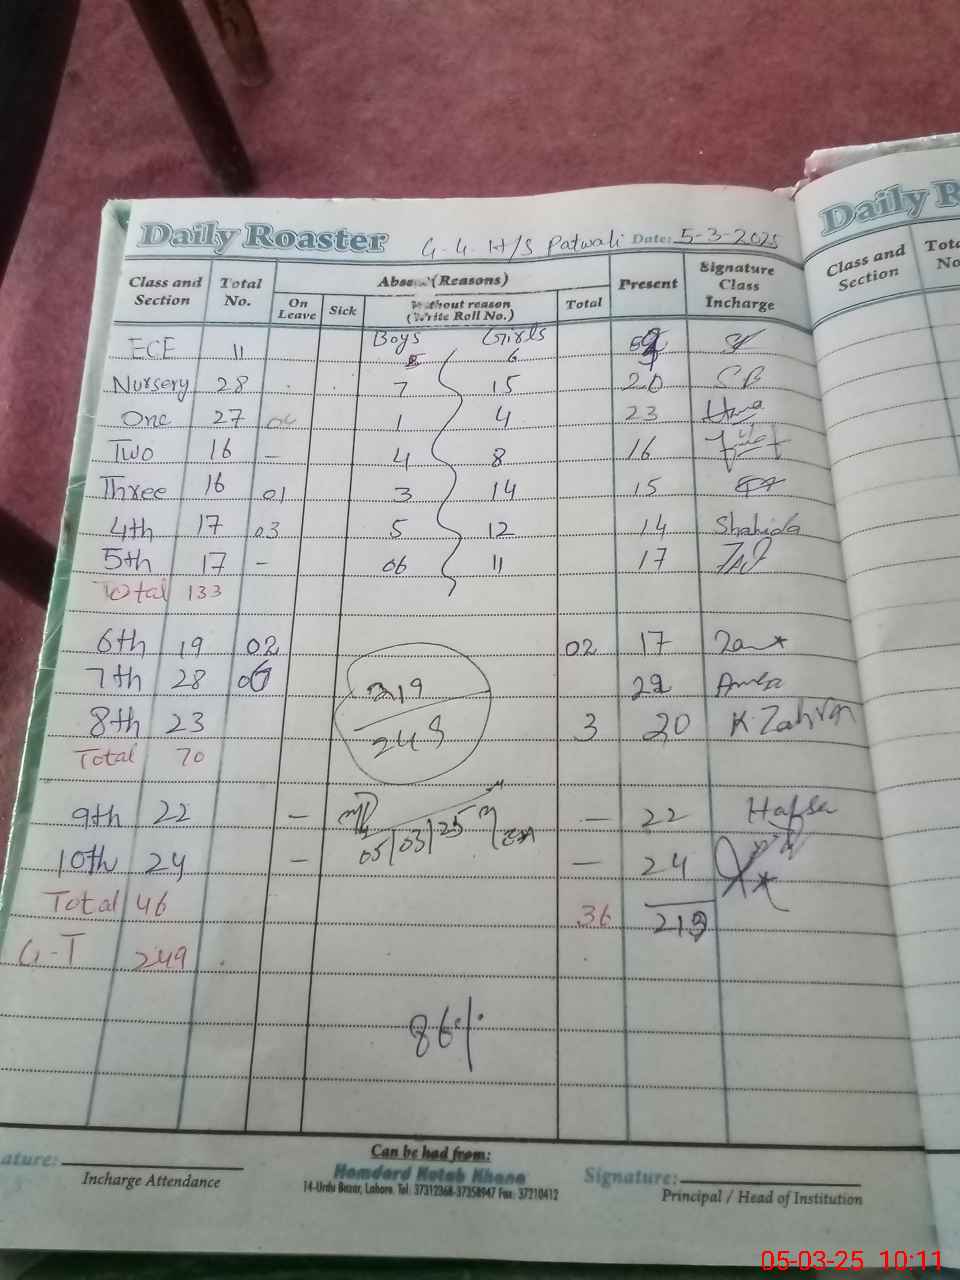 Daily Roaster G-G-H/S Patwali Date: 5-3-2025
Class and Section Total No. Absent (Reasons) Present Signature Class Incharge
On Leave Sick Without reason (Write Roll No.) Total
Boys Girls
ECE 11 6
Nursery 28 7 15 20 SB
One 27 04 1 4 23
Two 16 - 4 8 16
Three 16 01 3 14 15
4th 17 03 5 12 14 Shahida
5th 17 - 06 11 17
Total 133
6th 19 02 02 17
7th 28 22
8th 23 3 20 K. Zahra
Total 70
219
249
9th 22 - - 22 Hafsa
05/03/25
10th 24 - - 24
Total 46 36 219
G-T 249
86%
Signature:
Incharge Attendance
Can be had from:
Hamdard Kutab Khana
14-Urdu Bazar, Lahore. Tel: 37312368-37358947 Fax: 37210412
Signature:
Principal / Head of Institution
Daily R
Class and Section Tota No
05-03-25 10:11